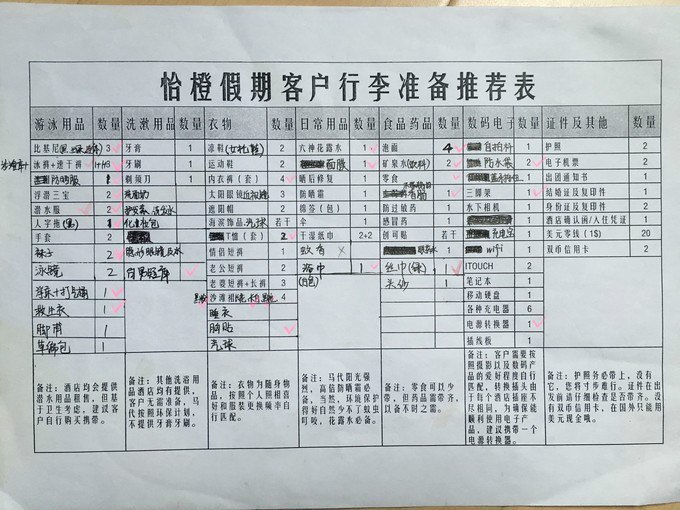 怡橙假期客户行李准备推荐表
游泳用品 数量 洗漱用品 数量 衣物 数量 日常用品 数量 食品药品 数量 数码电子 数量 证件及其他 数量
比基尼 3 牙膏 1 凉鞋(女拖鞋) 2 六神花露水 1 泡面 4 自拍杆 护照 2
泳裤+速干裤 1+1+3 牙刷 1 运动鞋 2 面膜 1 矿泉水(饮料) 2 防水袋 2 电子机票 2
防晒服 剃须刀 1 内衣裤(套) 4 晒后修复 1 零食 出团通知书 1
浮潜三宝 2 太阳眼镜 2 防晒霜 2 三脚架 1 结婚证及复印件 1
潜水服 2 遮阳帽 2 棉签(包) 1 防过敏药 1 水下相机 1 身份证及复印件 1
人字拖 2 化妆包 海滨饰品 若干 伞 1 感冒药 1 酒店确认函/入住凭证 1
手套 2 T恤(套) 2 干湿纸巾 2+2 创可贴 若干 充电宝 美元零钱(1$) 20
袜子 2 情侣短裤 1 蚊香 x wifi 双币信用卡 2
泳镜 2 老公短裤 2 浴巾 1 丝巾 1 ITOUCH 2
1 老婆短裤+长裤 3 (包) 头纱 笔记本 1
救生衣 1 沙滩裙 4 移动硬盘 1
脚蹼 1 睡衣 各种充电器 6
草编包 1 胸贴 电源转换器 1
气球 插线板 1
备注：酒店均会提供潜水用品租售，但基于卫生考虑，建议客户自行购买携带。
备注：其他洗浴用品酒店均有提供，客户无需准备，马代按照环保计划，不提供牙膏牙刷。
备注：衣物为随身物品，按照个人照相喜好和服装更换频率自行匹配。
备注：马代阳光强烈，高倍防晒霜必备，当然，环境保护得好自然少不了蚊虫叮咬，花露水必备。
备注：零食可以少带，但药品需带齐，以备不时之需。
备注：客户需要按照摄影以及数码产品的爱好程度自行匹配，转换插头由于每个酒店插座不尽相同，为确保能顺利使用电子产品，建议携带一个电源转换器。
备注：护照务必带上，没有它，您将寸步难行。证件在出发前请仔细检查是否带齐。没有双币信用卡，在国外只能用美元现金哦。